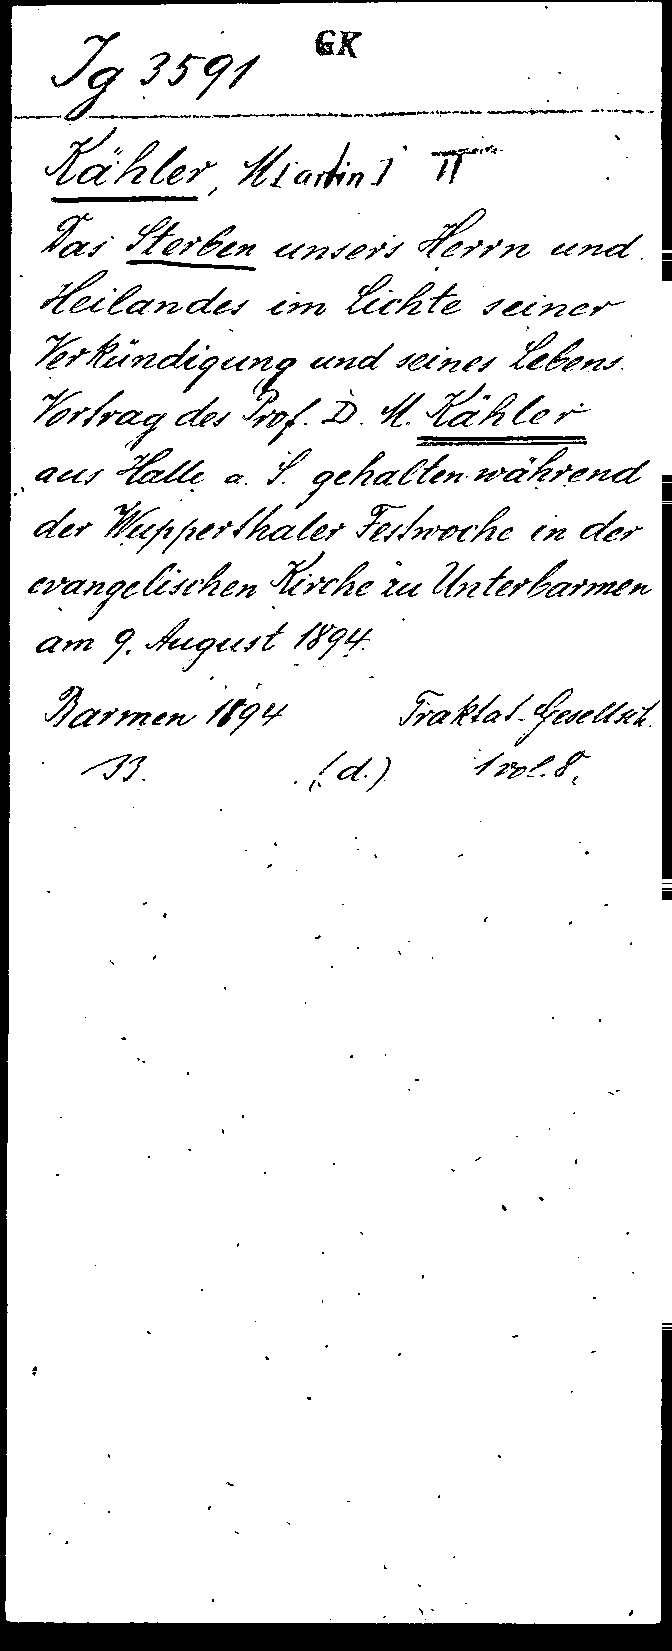 GK
Jg 3591
Kähler, M[artin] II
Das Sterben unsers Herrn und
Heilandes im Lichte seiner
Verkündigung und seines Lebens.
Vortrag des Prof. D. M. Kähler
aus Halle a. S. gehalten während
der Wupperthaler Festwoche in der
evangelischen Kirche zu Unterbarmen
am 9. August 1894.
Barmen 1894 Traktat-Gesellsch.
33. (d.) 1 vol. 8.